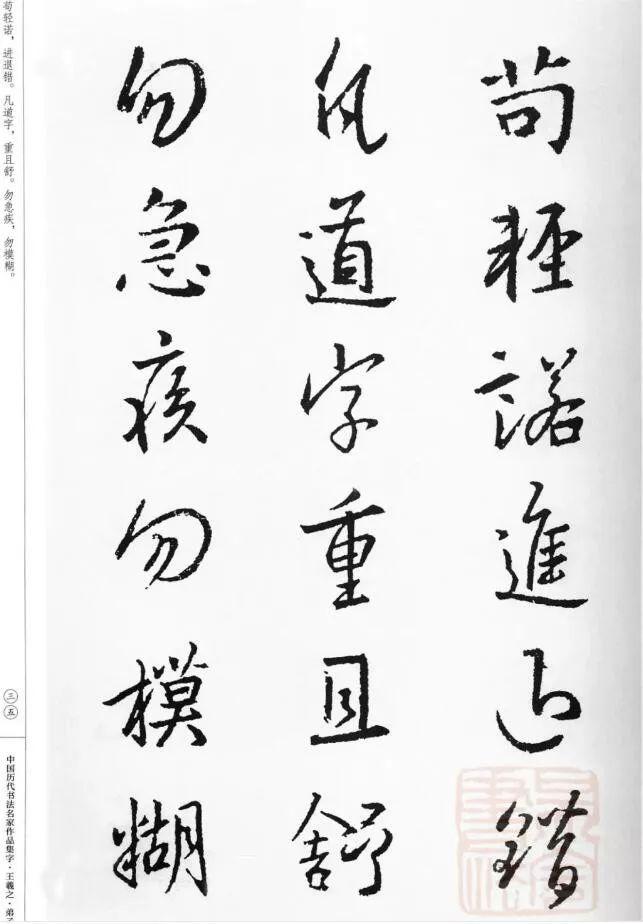 苟輕諾進退錯
凡道字重且舒
勿急疾勿模糊
苟轻诺，进退错。凡道字，重且舒。勿急疾，勿模糊。
三五
中国历代书法名家作品集字·王羲之·弟子